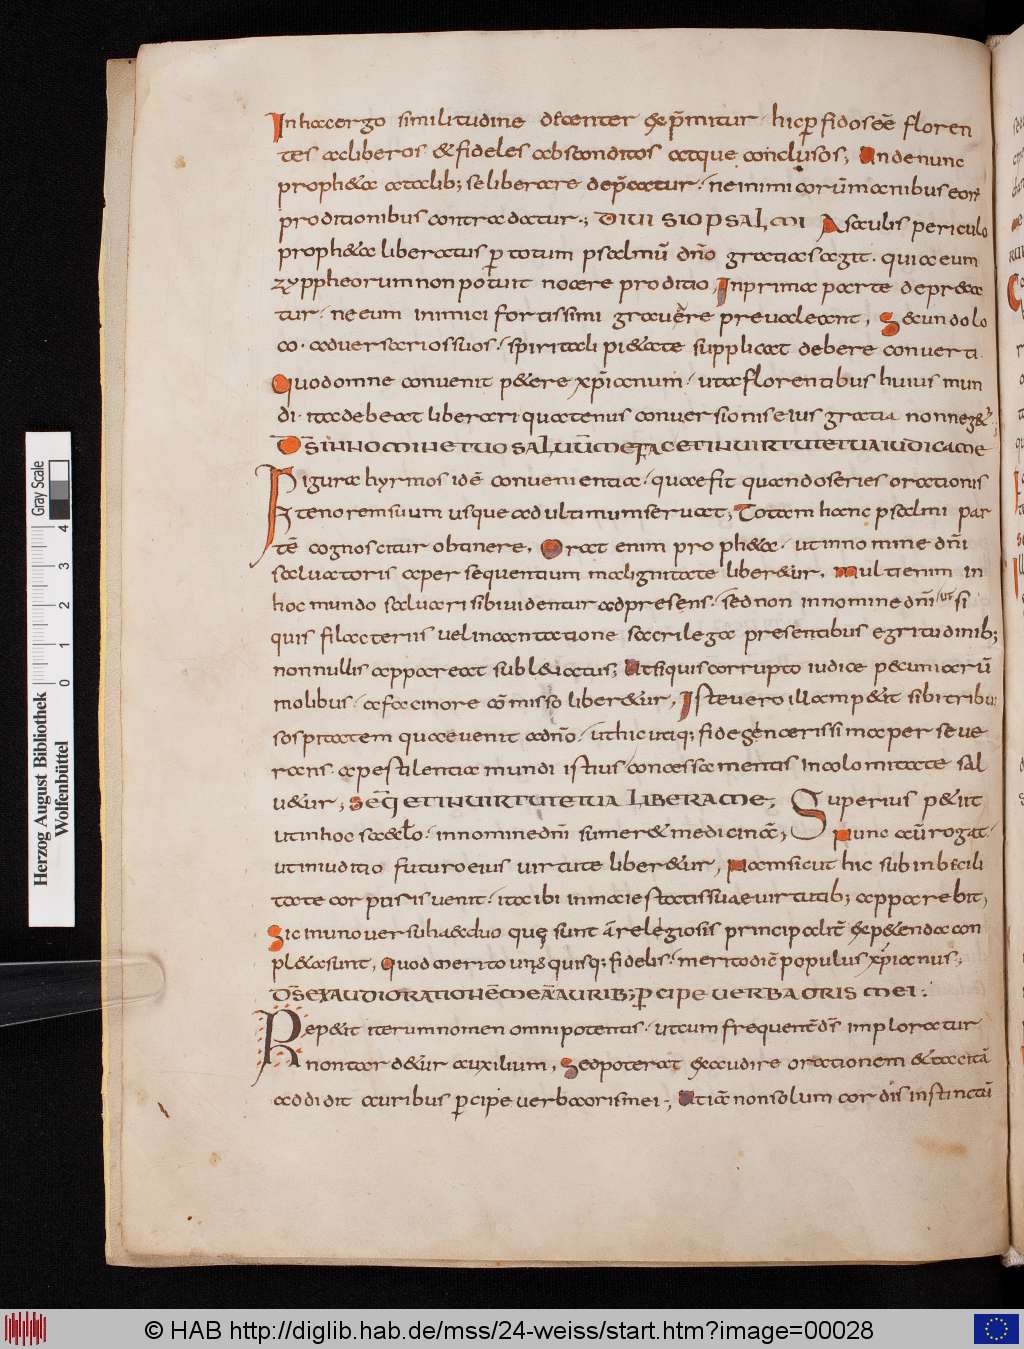 In hac ergo similitudine decenter exp̄mitur · hic p̄ fidos eē floren
tes ac liberos & fideles absconditos atque conclusos; Unde nunc
proph&a ata lib; se liberare dep̄catur · ne inimicorū manibus eorū
proditionibus contradatur·; DIUISIO PSALMI A saeuis periculo
proph&a liberatus p̄ totum psalmū dn̄o gratias agit · qui a eum
zyppheorum non potuit nocere proditio, In prima parte depræca
tur · ne eum inimici fortissimi grauere preualeant, Secundo lo
co · aduersarios suos · spiritali pi&ate supplicat debere conuerti
Quod omne conuenit p&ere xp̄ianum · uta florentibus huius mun
di · ita debeat liberari quatenus conuersionis eius gratia non neg&̄;
D̄S IN NOMINE TUO SALUŪ ME FAC ET IN UIRTUTE TUA IUDICA ME
Figura hyrmos idē conuenientia · quae fit quando series orationis
& tenorem suum usque ad ultimum seruat; Totam hanc psalmi par
tē cognoscitur obtinere, Orat enim proph&a · ut in nomine dn̄i
saluatoris a persequentium malignitate liber&ur, Multi enim in
hoc mundo saluari sibi uidentur ad presens · sed non in nomine dn̄i / ut si
quis filacteriis uel incantatione sacrilega presentibus egritudinib;
nonnullis appareat subleuatus; Ut si quis corrupto iudice pecuniarū
molibus · a facinore cōmisso liber&ur, Iste uero illam p&it sibi tribui
sospitatem quae uenit a dn̄o · ut hic utiq; fidegencarissima perseue
rans · a pestilentia mundi istius concessa mentis incolomitate sal
u&ur; SEQ̄ ET IN UIRTUTE TUA LIBERA ME; Superius p&iit
ut in hoc saeclo · in nomine dn̄i sumer& medicinā; Nunc aūrogat ·
ut in iuditio futuro eius uirtute liber&ur, Nam sicut hic sub inbecili
tate corptis is uenit · ita ibi in maiestatis suae uirtutib; apparebit,
Sic in uno uersu haec duo quę sunt a relegiosis principalit̄ exp&enda con
pl&a sunt, Quod merito unusquisq; fidelis · merito dic̄ populus xp̄ianus;
D̄S EXAUDI ORATIONĒ MEĀ AURIB; P̄CIPE UERBA ORIS MEI·:
Rep&it iterum nomen omnipotentis · ut cum frequentē d̄s imploratur
non tard&ur auxilium, Sed poterat exaudire orationem & tacitā
addidit auribus p̄cipe uerba oris mei·, Ut iā non solum cordis instinctū
Gray Scale
4
3
2
1
0
Herzog August Bibliothek
Wolfenbüttel
© HAB http://diglib.hab.de/mss/24-weiss/start.htm?image=00028